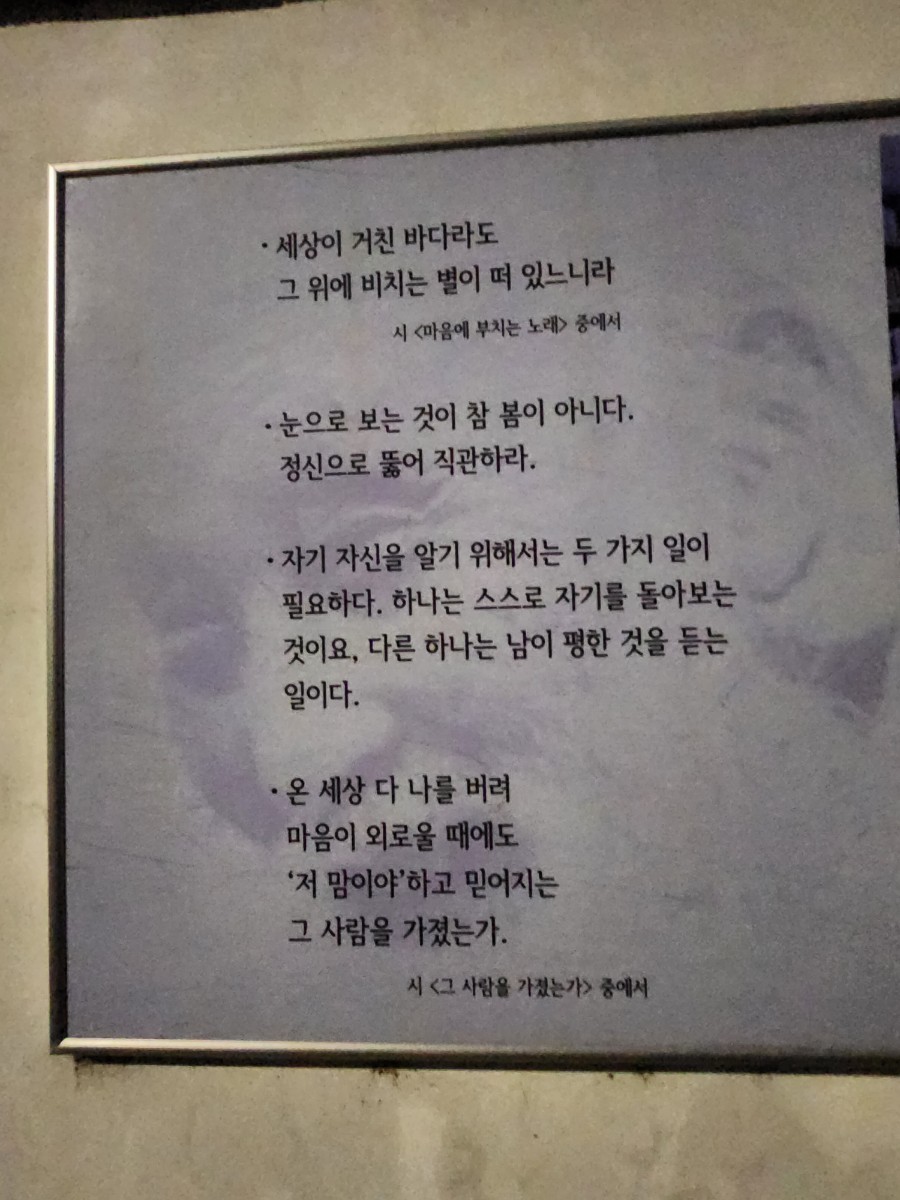 · 세상이 거친 바다라도
그 위에 비치는 별이 떠 있느니라
시 <마음에 부치는 노래> 중에서
· 눈으로 보는 것이 참 봄이 아니다.
정신으로 뚫어 직관하라.
· 자기 자신을 알기 위해서는 두 가지 일이
필요하다. 하나는 스스로 자기를 돌아보는
것이요, 다른 하나는 남이 평한 것을 듣는
일이다.
· 온 세상 다 나를 버려
마음이 외로울 때에도
‘저 맘이야’하고 믿어지는
그 사람을 가졌는가.
시 <그 사람을 가졌는가> 중에서